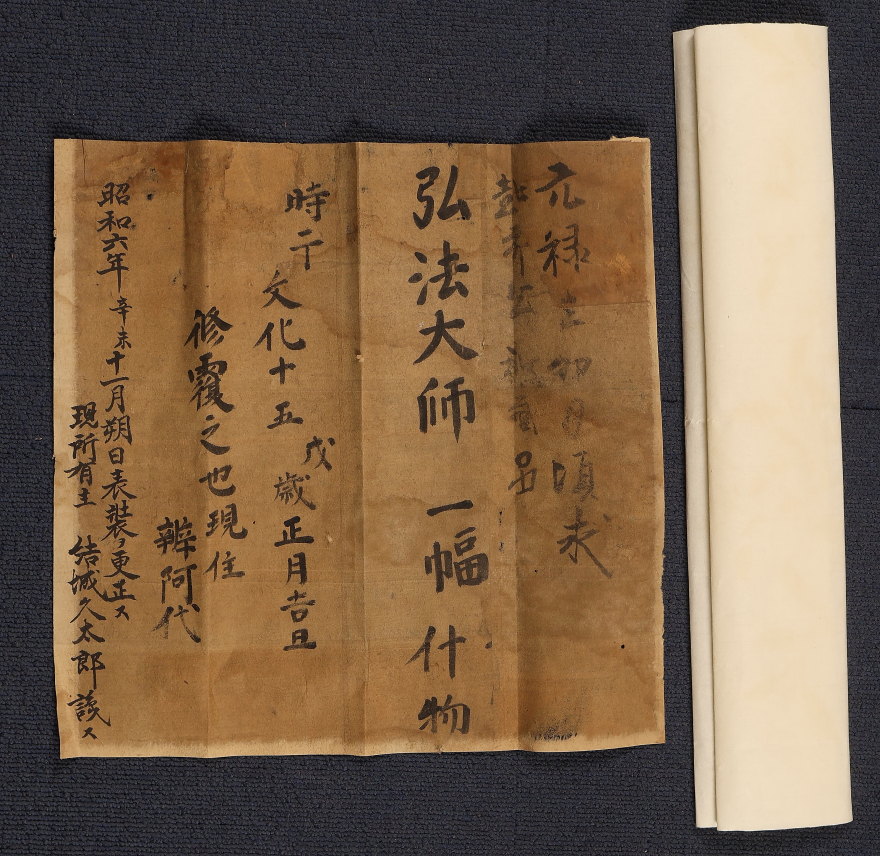 元禄
弘法大師 一幅 什物
時于
文化十五戊歳正月吉旦
修覆之也現住
辨阿代
昭和六年辛未十一月朔日表装ヲ更正ス
現所有主 結城久太郎 誌ス